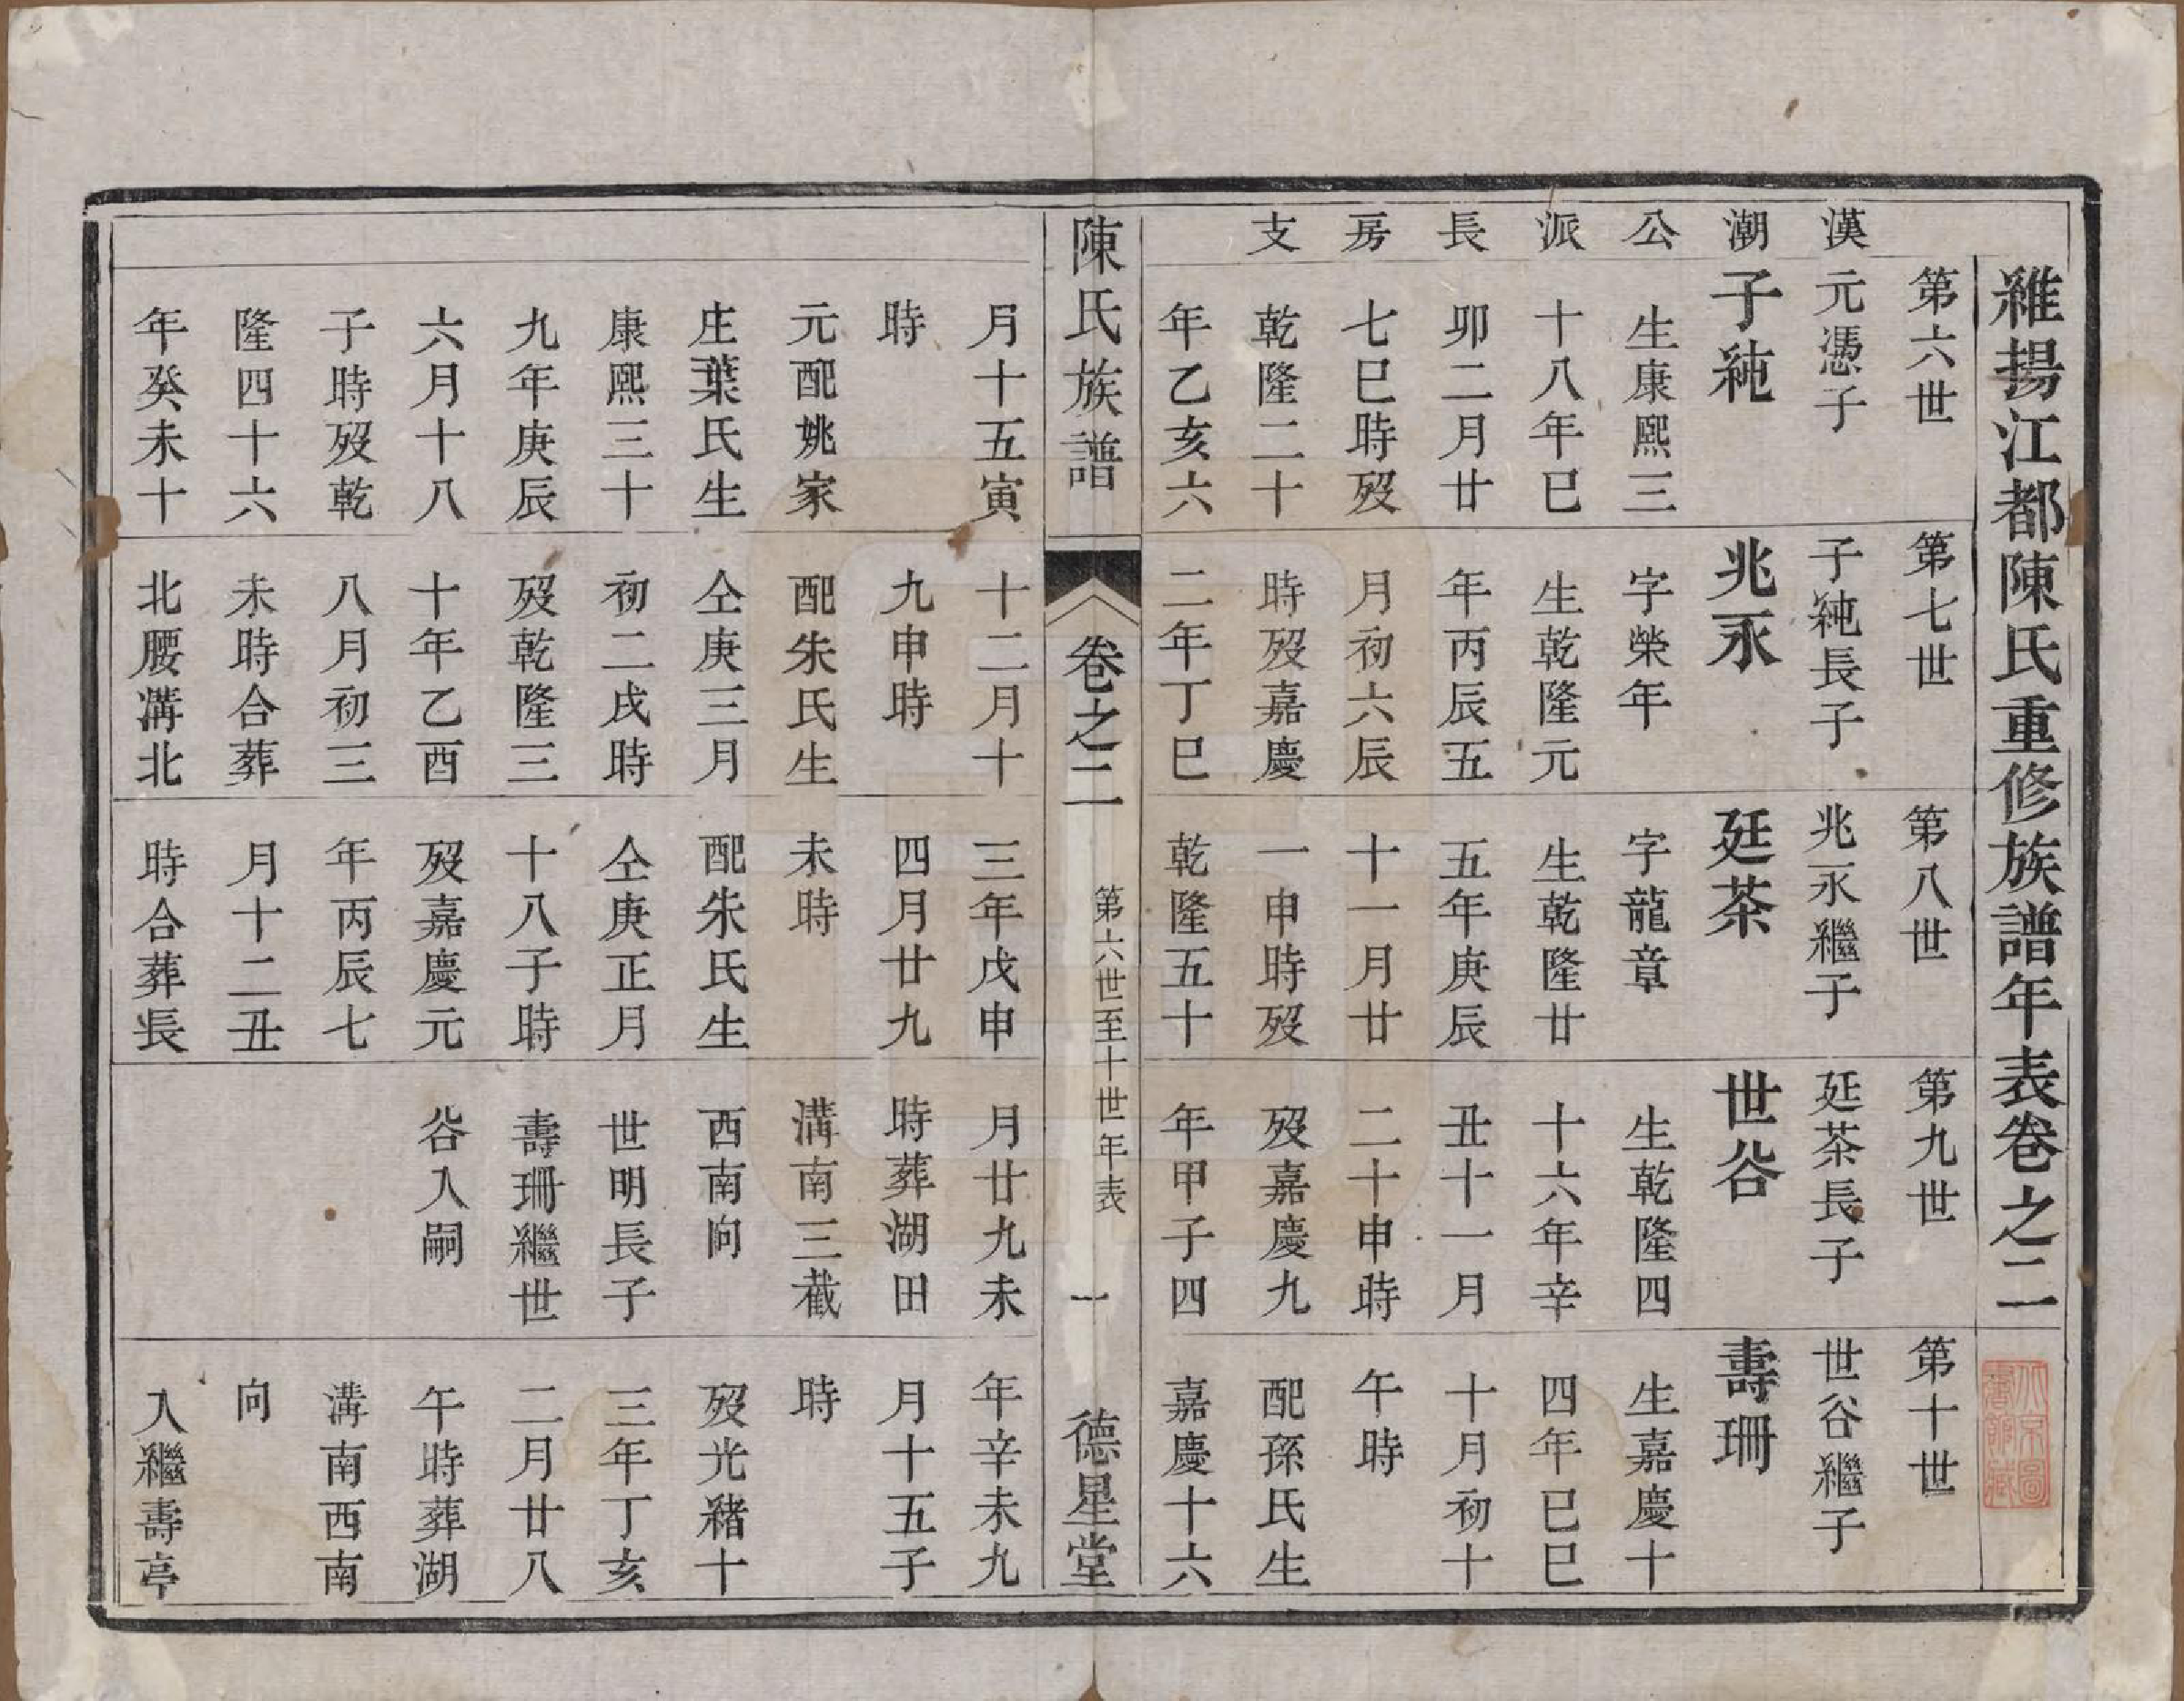 維揚江都陳氏重修族譜年表卷之二
漢潮公派長房支
第六世
元憑子
子純
生康熙三
十八年巳
卯二月廿
七巳時歿
乾隆二十
年乙亥六
月十五寅
時
元配姚家
庄葉氏生
康熙三十
九年庚辰
六月十八
子時歿乾
隆四十六
年癸未十
第七世
子純長子
兆永
字榮年
生乾隆元
年丙辰五
月初六辰
時歿嘉慶
二年丁巳
十二月十
九申時
配朱氏生
仝庚三月
初二戌時
歿乾隆三
十年乙酉
八月初三
未時合葬
北腰溝北
第八世
兆永繼子
廷茶
字龍章
生乾隆廿
五年庚辰
十一月廿
一申時歿
乾隆五十
三年戊申
四月廿九
未時
配朱氏生
仝庚正月
十八子時
歿嘉慶元
年丙辰七
月十二丑
時合葬長
第九世
廷茶長子
世谷
生乾隆四
十六年辛
丑十一月
二十申時
歿嘉慶九
年甲子四
月廿九未
時葬湖田
溝南三截
西南向
世明長子
壽珊繼世
谷入嗣
第十世
世谷繼子
壽珊
生嘉慶十
四年巳巳
十月初十
午時
配孫氏生
嘉慶十六
年辛未九
月十五子
時
歿光緒十
三年丁亥
二月廿八
午時葬湖
溝南西南
向
入繼壽亭
陳氏族譜
卷之二
第六世至十世年表
一
德星堂